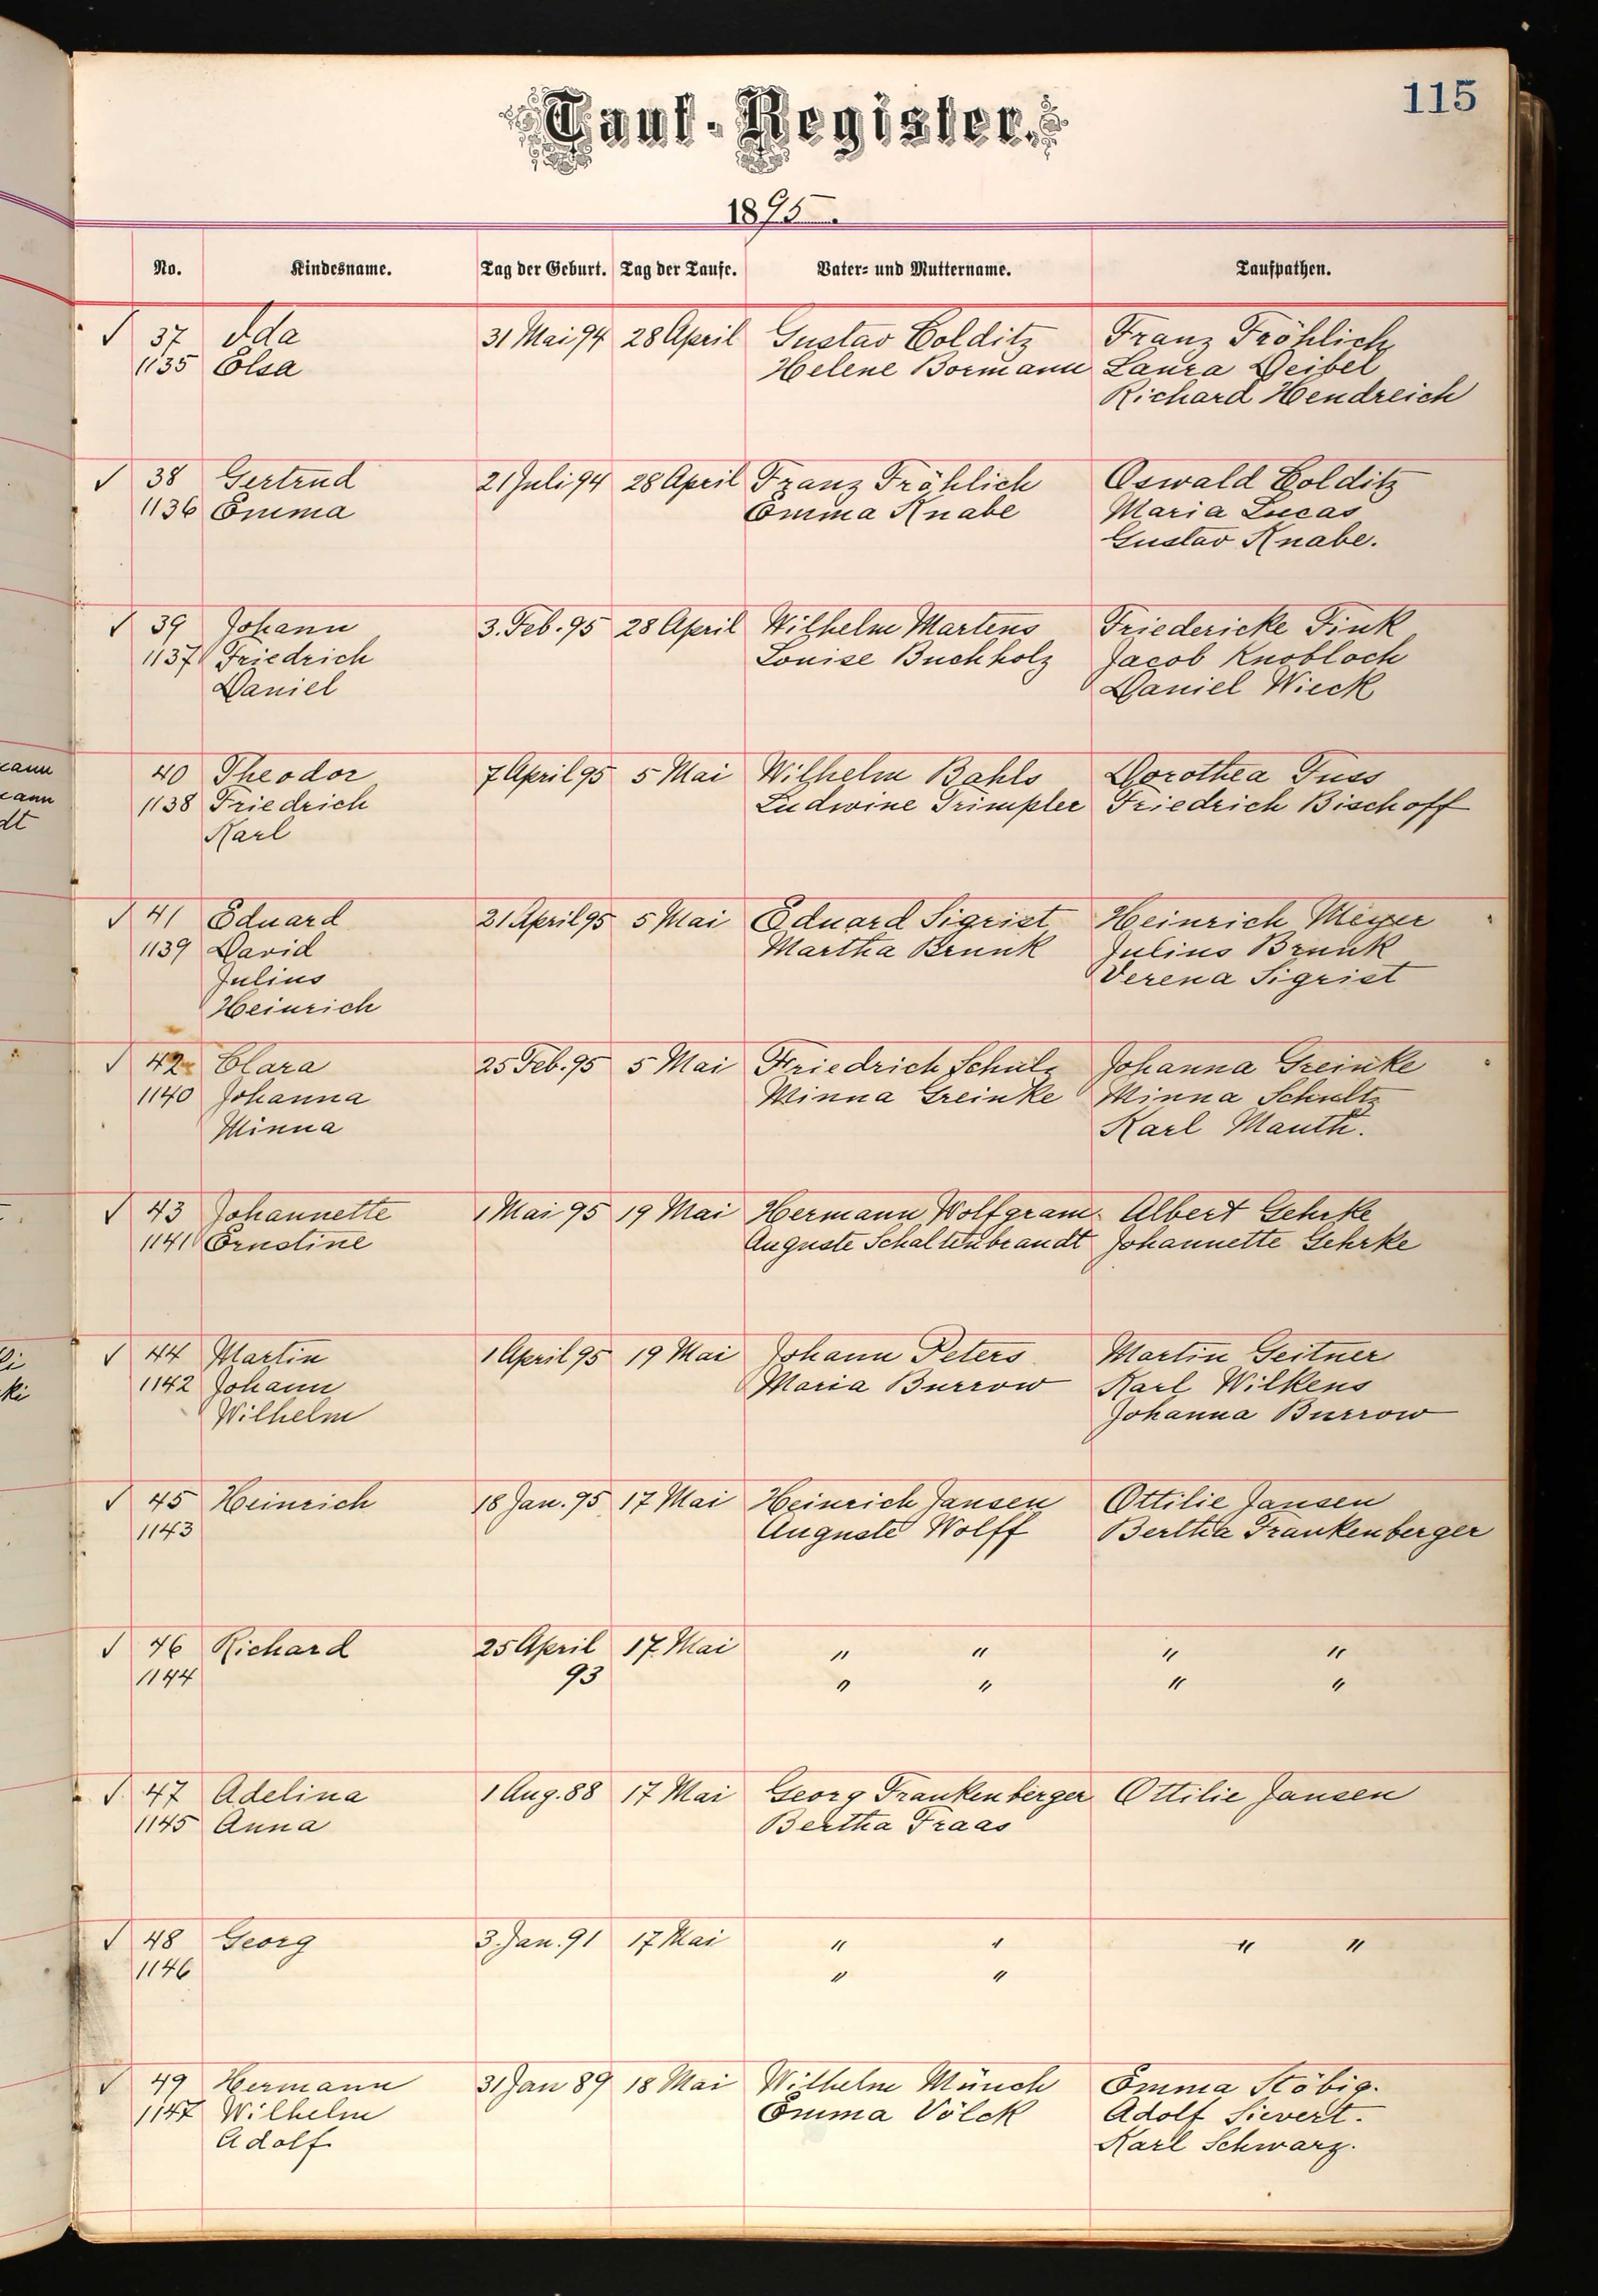 115
Tauf-Register.
1895.
No. Kindesname. Tag der Geburt. Tag der Taufe. Vater- und Muttername. Taufpathen.
37 Ida 31 Mai 94 28 April Gustav Colditz Franz Fröhlich
1135 Elsa Helene Bormann Laura Deibel
Richard Hendreich
38 Gertrud 21 Juli 94 28 April Franz Fröhlich Oswald Colditz
1136 Emma Emma Knabe Maria Lucas
Gustav Knabe.
39 Johann 3. Feb. 95 28 April Wilhelm Martens Friedericke Fink
1137 Friedrich Louise Buchholz Jacob Knobloch
Daniel Daniel Wieck
40 Theodor 7 April 95 5 Mai Wilhelm Bahls Dorothea Fuss
1138 Friedrich Ludwine Trimpler Friedrich Bischoff
Karl
41 Eduard 21 April 95 5 Mai Eduard Sigrist Heinrich Meyer
1139 David Martha Brunk Julius Brunk
Julius Verena Sigrist
Heinrich
42 Clara 25 Feb. 95 5 Mai Friedrich Schulz Johanna Greinke
1140 Johanna Minna Greinke Minna Schultz
Minna Karl Manth.
43 Johannette 1 Mai 95 19 Mai Hermann Wolfgram. Albert Gehrke
1141 Ernstine Auguste Schaltenbrandt Johannette Gehrke
44 Martin 1 April 95 19 Mai Johann Peters Martin Geitner
1142 Johann Maria Burrow Karl Wilkens
Wilhelm Johanna Burrow
45 Heinrich 18 Jan. 95 17 Mai Heinrich Jansen Ottilie Jansen
1143 Auguste Wolff Bertha Frankenberger
46 Richard 25 April 17 Mai " " " "
1144 93 " " " "
47 Adelina 1 Aug. 88 17 Mai Georg Frankenberger Ottilie Jansen
1145 Anna Bertha Fraas
48 Georg 3. Jan. 91 17 Mai " " " "
1146 " "
49 Hermann 31 Jan 89 18 Mai Wilhelm Münch Emma Stöbig.
1147 Wilhelm Emma Völck Adolf Sievert.
Adolf Karl Schwarz.